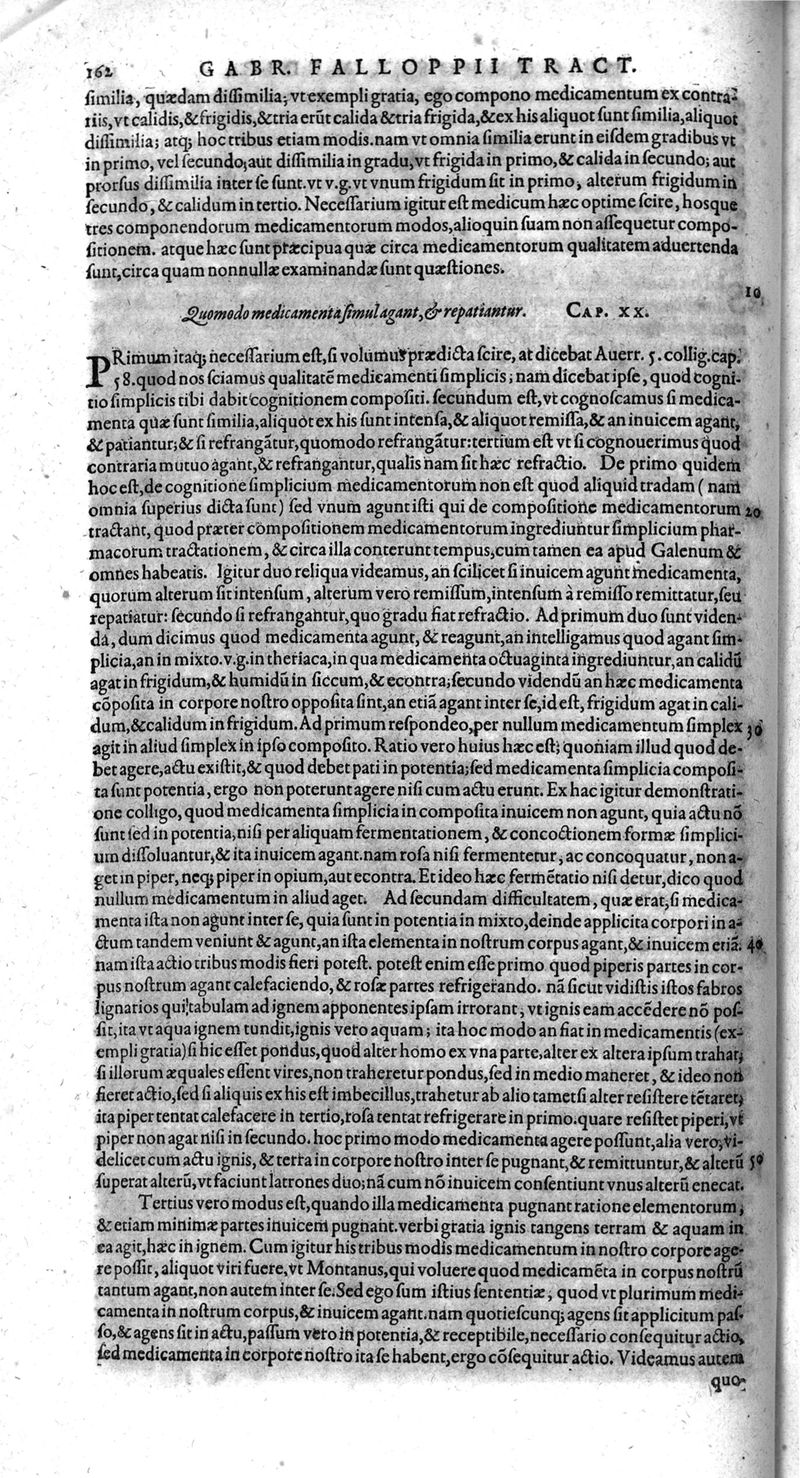 162 GABR. FALLOPPII TRACT.
ſimilia, quædam diſſimilia; vt exempli gratia, ego compono medicamentum ex contra-
riis, vt calidis, & frigidis, & tria erũt calida & tria frigida, & ex his aliquot ſunt ſimilia, aliquot
diſſimilia; atq; hoc tribus etiam modis. nam vt omnia ſimilia erunt in eiſdem gradibus vt
in primo, vel ſecundo; aut diſſimilia in gradu, vt frigida in primo, & calida in ſecundo; aut
prorſus diſſimilia inter ſe ſunt. vt v.g. vt vnum frigidum ſit in primo, alterum frigidum in
ſecundo, & calidum in tertio. Neceſſarium igitur eſt medicum hæc optime ſcire, hosque
tres componendorum medicamentorum modos, alioquin ſuam non aſſequetur compo-
ſitionem. atque hæc ſunt præcipua quæ circa medicamentorum qualitatem aduertenda
ſunt, circa quam nonnullæ examinandæ ſunt quæſtiones.
10
Quomodo medicamenta ſimul agant, & repatiantur. CAP. XX.
PRimum itaq; neceſſarium eſt, ſi volumus prædicta ſcire, at dicebat Auerr. 5. collig. cap.
58. quod nos ſciamus qualitatẽ medicamenti ſimplicis; nam dicebat ipſe, quod cogni-
tio ſimplicis tibi dabit cognitionem compoſiti. ſecundum eſt, vt cognoſcamus ſi medica-
menta quæ ſunt ſimilia, aliquot ex his ſunt intenſa, & aliquot remiſſa, & an inuicem agant,
& patiantur; & ſi refrangãtur, quomodo refrangãtur: tertium eſt vt ſi cognouerimus quod
contraria mutuo agant, & refrangantur, qualis nam ſit hæc refractio. De primo quidem
hoc eſt, de cognitione ſimplicium medicamentorum non eſt quod aliquid tradam (nam
omnia ſuperius dicta ſunt) ſed vnum agunt iſti qui de compoſitione medicamentorum 20
tractant, quod præter compoſitionem medicamentorum ingrediuntur ſimplicium phar-
macorum tractationem, & circa illa conterunt tempus, cum tamen ea apud Galenum &
omnes habeatis. Igitur duo reliqua videamus, an ſcilicet ſi inuicem agunt medicamenta,
quorum alterum ſit intenſum, alterum vero remiſſum, intenſum à remiſſo remittatur, ſeu
repatiatur: ſecundo ſi refrangantur, quo gradu fiat refractio. Ad primum duo ſunt viden-
da, dum dicimus quod medicamenta agunt, & reagunt, an intelligamus quod agant ſim-
plicia, an in mixto. v.g. in theriaca, in qua medicamenta octuaginta ingrediuntur, an calidũ
agat in frigidum, & humidũ in ſiccum, & econtra; ſecundo videndũ an hæc medicamenta
cõpoſita in corpore noſtro oppoſita ſint, an etiã agant inter ſe, id eſt, frigidum agat in cali-
dum, & calidum in frigidum. Ad primum reſpondeo, per nullum medicamentum ſimplex 30
agit in aliud ſimplex in ipſo compoſito. Ratio vero huius hæc eſt; quoniam illud quod de-
bet agere, actu exiſtit, & quod debet pati in potentia; ſed medicamenta ſimplicia compoſi-
ta ſunt potentia, ergo non poterunt agere niſi cum actu erunt. Ex hac igitur demonſtrati-
one colligo, quod medicamenta ſimplicia in compoſita inuicem non agunt, quia actu nõ
ſunt ſed in potentia, niſi per aliquam fermentationem, & concoctionem formæ ſimplici-
um diſſoluantur, & ita inuicem agant. nam roſa niſi fermentetur, ac concoquatur, non a-
get in piper, neq; piper in opium, aut econtra. Et ideo hæc fermẽtatio niſi detur, dico quod
nullum medicamentum in aliud aget. Ad ſecundam difficultatem, quæ erat, ſi medica-
menta iſta non agunt inter ſe, quia ſunt in potentia in mixto, deinde applicita corpori in a-
ctum tandem veniunt & agunt, an iſta elementa in noſtrum corpus agant, & inuicem etiã. 40
nam iſta actio tribus modis fieri poteſt. poteſt enim eſſe primo quod piperis partes in cor-
pus noſtrum agant calefaciendo, & roſæ partes refrigerando. nã ſicut vidiſtis iſtos fabros
lignarios qui tabulam ad ignem apponentes ipſam irrorant, vt ignis eam accẽdere nõ poſ-
ſit, ita vt aqua ignem tundit, ignis vero aquam; ita hoc modo an fiat in medicamentis (ex-
empli gratia) ſi hic eſſet pondus, quod alter homo ex vna parte, alter ex altera ipſum trahat,
ſi illorum æquales eſſent vires, non traheretur pondus, ſed in medio maneret, & ideo non
fieret actio, ſed ſi aliquis ex his eſt imbecillus, trahetur ab alio tametſi alter reſiſtere tẽtaret,
ita piper tentat calefacere in tertio, roſa tentat refrigerare in primo. quare reſiſtet piperi, vt
piper non agat niſi in ſecundo. hoc primo modo medicamenta agere poſſunt, alia vero, vi-
delicet cum actu ignis, & terra in corpore noſtro inter ſe pugnant, & remittuntur, & alterũ 50
ſuperat alterũ, vt faciunt latrones duo; nã cum nõ inuicem conſentiunt vnus alterũ enecat.
Tertius vero modus eſt, quando illa medicamenta pugnant ratione elementorum,
& etiam minimæ partes inuicem pugnant. verbi gratia ignis tangens terram & aquam in
ea agit, hæc in ignem. Cum igitur his tribus modis medicamentum in noſtro corpore age-
re poſſit, aliquot viri fuere, vt Montanus, qui voluere quod medicamẽta in corpus noſtrũ
tantum agant, non autem inter ſe. Sed ego ſum iſtius ſententiæ, quod vt plurimum medi-
camenta in noſtrum corpus, & inuicem agant. nam quotieſcunq; agens ſit applicitum paſ-
ſo, & agens ſit in actu, paſſum vero in potentia, & receptibile, neceſſario conſequitur actio,
ſed medicamenta in corpore noſtro ita ſe habent, ergo cõſequitur actio. Videamus autem
quo-